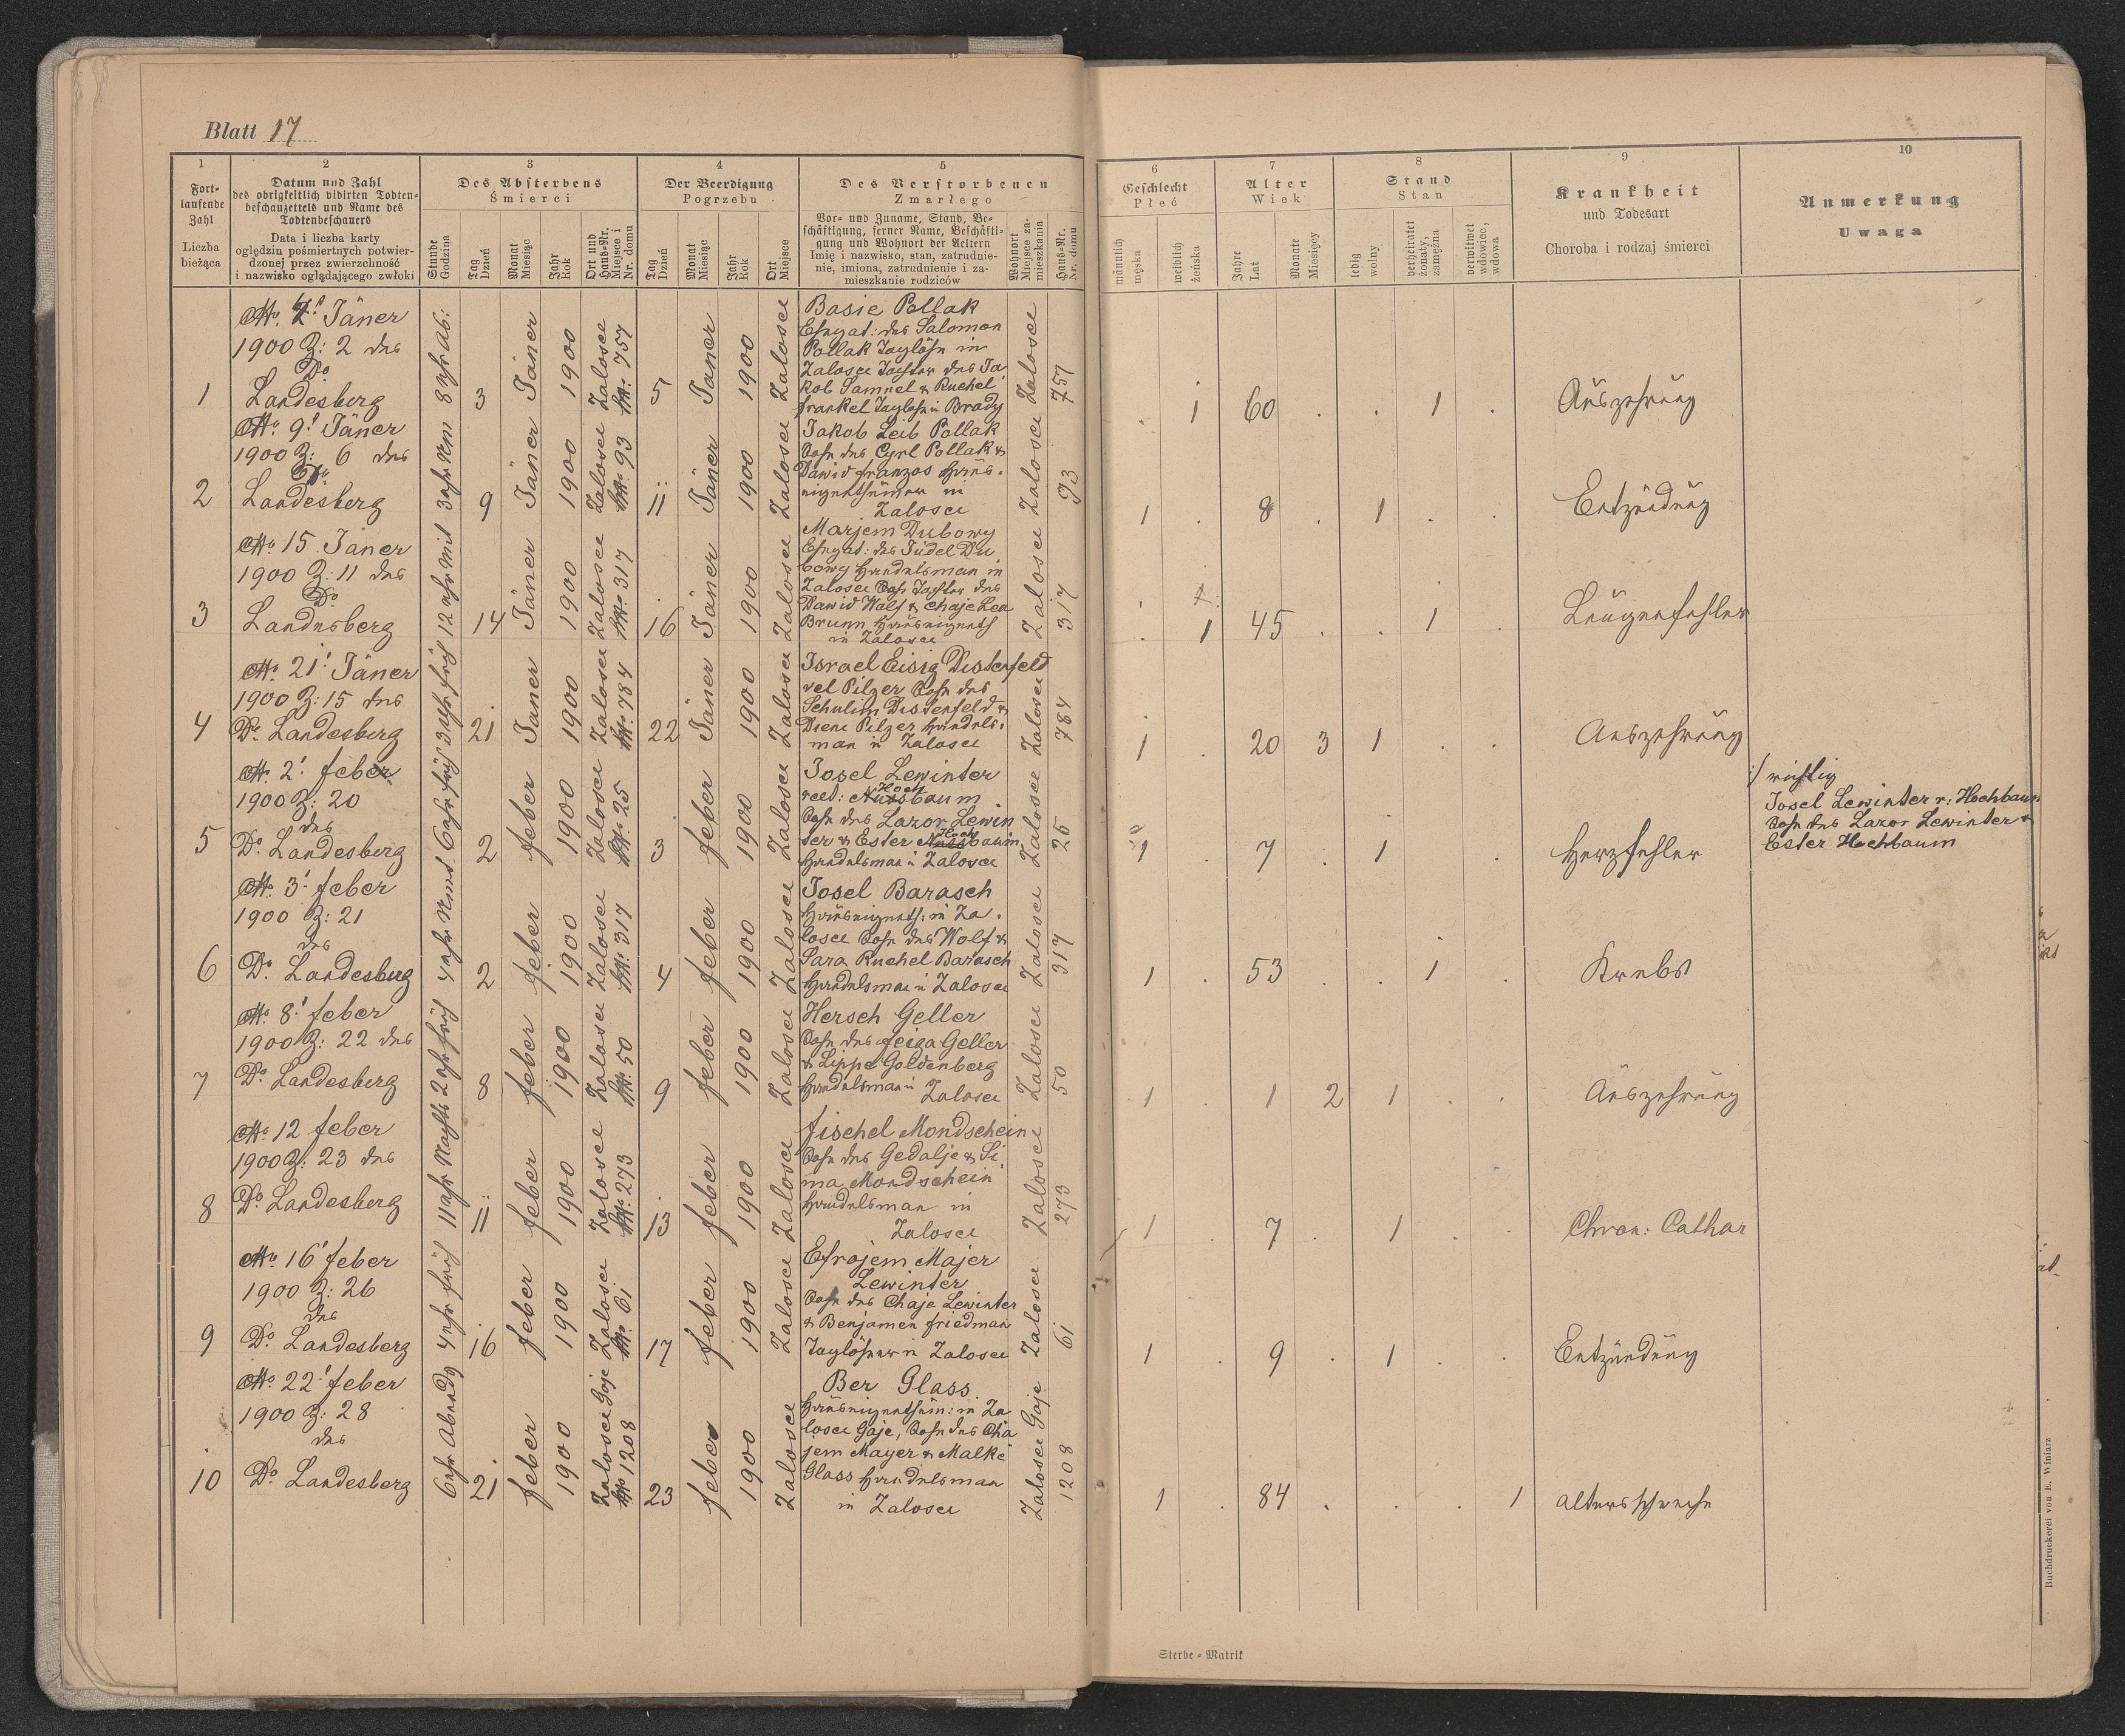 Blatt 17
1 2 3 4 5
Fort-
laufende
Zahl
Liczba
bieżąca
Datum und Zahl
des obrigkeitlich vidirten Todten-
beschauzettels und Name des
Todtenbeschauers
Data i liczba karty
oględzin pośmiertnych potwier-
dzonej przez zwierzchność
i nazwisko oglądającego zwłoki
Des Absterbens
Śmierci
Stunde
Godzina
Tag
Dzień
Monat
Miesiąc
Jahr
Rok
Ort und
Haus-Nr.
Miejsce i
Nr. domu
Der Beerdigung
Pogrzebu
Tag
Dzień
Monat
Miesiąc
Jahr
Rok
Ort
Miejsce
Des Verstorbenen
Zmarłego
Vor- und Zuname, Stand, Be-
schäftigung, ferner Name, Beschäfti-
gung und Wohnort der Aeltern
Imię i nazwisko, stan, zatrudnie-
nie, imiona, zatrudnienie i za-
mieszkanie rodziców
Wohnort
Miejsce za-
mieszkania
Haus-Nr.
Nr. domu
6 7 8 9 10
Geschlecht
Płeć
männlich
męska
weiblich
żeńska
Alter
Wiek
Jahre
Lat
Monate
Miesięcy
Stand
Stan
ledig
wolny
verheiratet
żonaty,
zamężna
verwitwet
wdowiec,
wdowa
Krankheit
und Todesart
Choroba i rodzaj śmierci
Anmerkung
Uwaga
1
Jäner
1900 Z: 2 des
Do
Landesberg
8 Uhr Ab:
3
Jäner
1900
Zalosce
757
5
Jäner
1900
Zalosce
Basie Pollak
Ehegat: des Salomon
Pollak Taglöhn in
Zalosce Tochter des Ja
kob Samuel & Ruchel
Frankel Taglöhn in Brody
Zalosce
757
1 60 1
Auszehrung
2
No 9! Jäner
1900 Z: 6 des
Do
Landesberg
3 Uhr Nm
9
Jäner
1900
Zalosce
93
11
Jäner
1900
Zalosce
Jakob Leib Pollak
Sohn des Cyrl Pollak &
Dawid Franzos Haus-
eigenthümer in
Zalosce
Zalosce
93
1 8 1
Entzündung
3
No 15 Jäner
1900 Z: 11 des
Do
Landesberg
12 Uhr Mit
14
Jäner
1900
Zalosce
317
16
Jäner
1900
Zalosce
Marjem Dubowy
Ehegat: des Judel Du
bowy Handelsman in
Zalosce Tochter des
Dawid Wolf & Chaje Lea
Brunn Hauseigenth
in Zalosce
Zalosce
317
1 45 1
Lungenfehler
4
No 21! Jäner
1900 Z: 15 des
Do Landesberg
3 Uhr früh
21
Jäner
1900
Zalosce
784
22
Jäner
1900
Zalosce
Israel Eisig Distenfeld
vel Pilzer Sohn des
Schulim Distenfeld &
Diene Pilzer Handels-
man in Zalosce
Zalosce
784
1 20 3 1
Auszehrung
5
No 2! Feber
1900 Z: 20
des
Do Landesberg
6 Uhr früh
2
Feber
1900
Zalosce
25
3
Feber
1900
Zalosce
Josel Lewinter
Hoch
rect: Nussbaum
Sohn des Lazor Lewin
Hoch
ter & Ester Nussbaum
Handelsman in Zalosce
Zalosce
25
1 7 1
Herzfehler
richtig
Josel Lewinter r: Hochbaum
Sohn des Lazor Lewinter &
Ester Hochbaum
6
No 3! Feber
1900 Z: 21
des
Do Landesberg
4 Uhr
2
Feber
1900
Zalosce
317
4
Feber
1900
Zalosce
Josel Barasch
Hauseigenth: in Za-
losce Sohn des Wolf &
Sara Ruchel Barasch
Handelsman in Zalosce
Zalosce
317
1 53 1
Krebs
7
No 8! Feber
1900 Z: 22 des
Do Landesberg
2 Uhr früh
8
Feber
1900
Zalosce
50
9
Feber
1900
Zalosce
Hersch Geller
Sohn des Feiga Geller
& Lippe Goldenberg
Handelsman in Zalosce
Zalosce
50
1 1 2 1
Auszehrung
8
No 12 Feber
1900 Z: 23 des
Do Landesberg
11 Uhr Nachts
11
Feber
1900
Zalosce
273
13
Feber
1900
Zalosce
Fischel Mondschein
Sohn des Gedalje & Si
ma Mondschein
Handelsman in
Zalosce
Zalosce
273
1 7 1
Chron: Cathar
9
No 16! Feber
1900 Z: 26
des
Do Landesberg
4 Uhr früh
16
Feber
1900
Zalosce
61
17
Feber
1900
Zalosce
Efrojem Majer
Lewinter
Sohn des Chaje Lewinter
& Benjamen Friedman
Taglöhner in Zalosce
Zalosce
61
1 9 1
Entzündung
10
No 22! Feber
1900 Z: 28
des
Do Landesberg
6 Uhr Abends
21
Feber
1900
Zalosce Gaje
1208
23
Feber
1900
Zalosce
Ber Glass
Hauseigenthüm: in Za
losce Gaje, Sohn des Cha
jem Mayer & Malke
Glass Handelsman
in Zalosce
Zalosce Gaje
1208
1 84 1
Altersschwäche
Sterbe-Matrik
Buchdruckerei von E. Winiarz